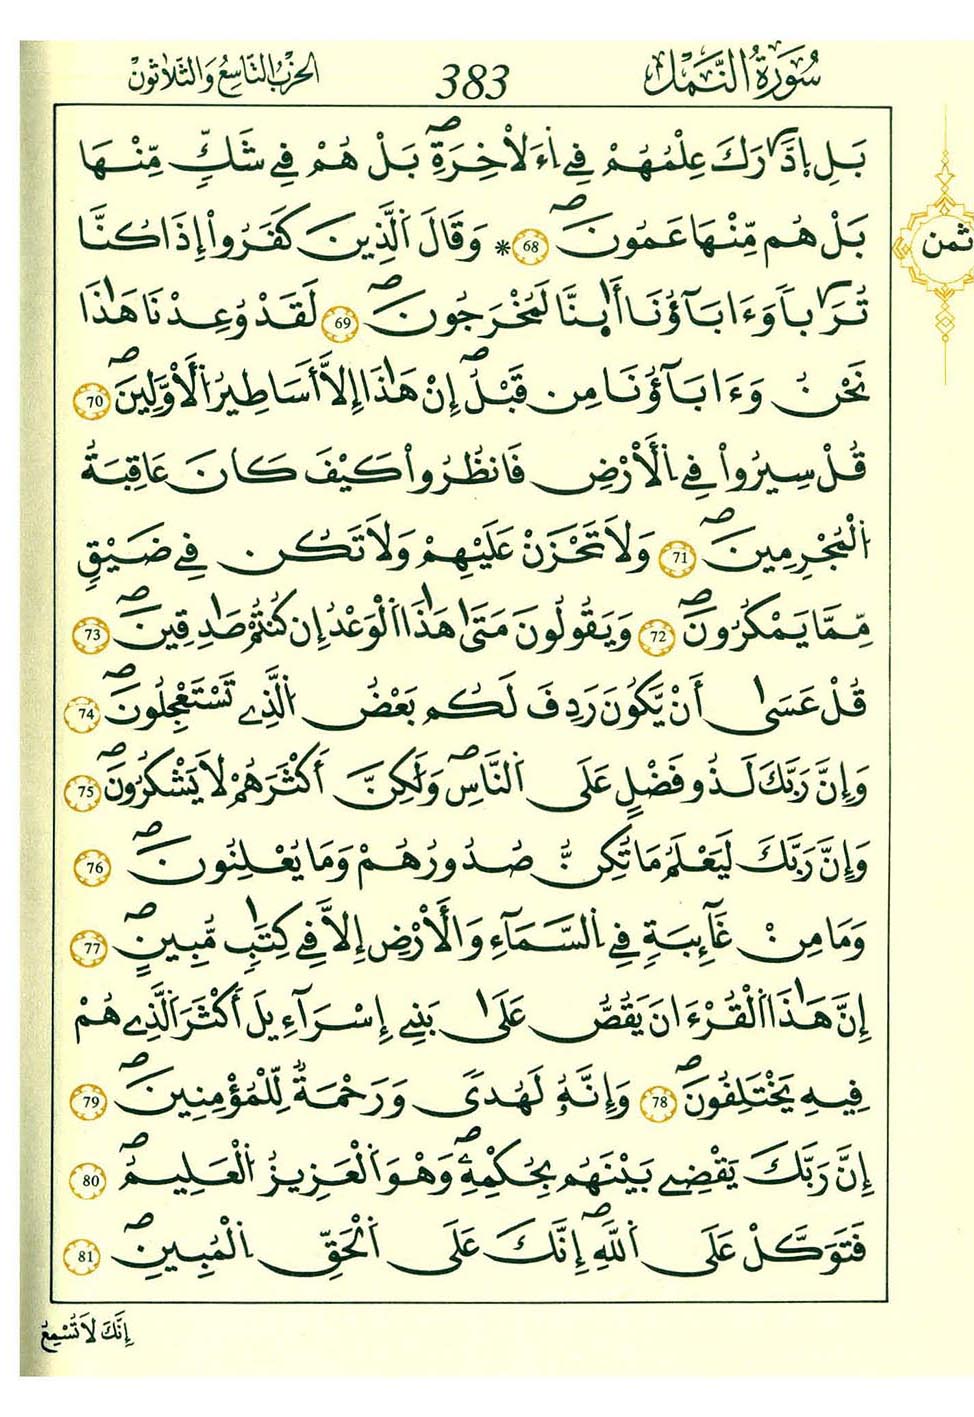 سُورَةُ النَّمْلِ
383
الحِزْبُ التَّاسِعُ وَالثَّلَاثُونَ
بَلِ اِدَّٰرَكَ عِلْمُهُمْ فِے اِ۬ءَلَاْخِرَةِۖ بَلْ هُمْ فِے شَكّٖ مِّنْهَا
بَلْ هُم مِّنْهَا عَمُونَۖ 68 * وَقَالَ اَ۬لذِينَ كَفَرُوٓاْ إِذَا كُنَّا
تُرَٰباٗ وَءَابَآؤُنَآ أَٰ۟ىِٕنَّا لَمُخْرَجُونَۖ 69 لَقَدْ وُعِدْنَا هَٰذَا
نَحْنُ وَءَابَآؤُنَا مِن قَبْلُۖ إِنْ هَٰذَآ إِلَّآ أَسَٰطِيرُ اُ۬لَاْوَّلِينَۖ 70
قُلْ سِيرُواْ فِے اِ۬لَارْضِ فَانظُرُواْ كَيْفَ كَانَ عَٰقِبَةُ
اُ۬لْمُجْرِمِينَۖ 71 وَلَا تَحْزَنْ عَلَيْهِمْ وَلَا تَكُن فِے ضَيْقٖ
مِّمَّا يَمْكُرُونَۖ 72 وَيَقُولُونَ مَتَىٰ هَٰذَا اَ۬لْوَعْدُ إِن كُنتُمْ صَٰدِقِينَۖ 73
قُلْ عَسَىٰٓ أَنْ يَّكُونَ رَدِفَ لَكُم بَعْضُ اُ۬لذِے تَسْتَعْجِلُونَۖ 74
وَإِنَّ رَبَّكَ لَذُو فَضْلٍ عَلَى اَ۬لنَّاسِۖ وَلَٰكِنَّ أَكْثَرَهُمْ لَا يَشْكُرُونَۖ 75
وَإِنَّ رَبَّكَ لَيَعْلَمُ مَا تُكِنُّ صُدُورُهُمْ وَمَا يُعْلِنُونَۖ 76
وَمَا مِنْ غَآئِبَةٖ فِے اِ۬لسَّمَآءِ وَالَارْضِ إِلَّا فِے كِتَٰبٖ مُّبِينٍۖ 77
إِنَّ هَٰذَا اَ۬لْقُرْءَانَ يَقُصُّ عَلَىٰ بَنِےٓ إِسْرَآءِيلَ أَكْثَرَ اَ۬لذِے هُمْ
فِيهِ يَخْتَلِفُونَۖ 78 وَإِنَّهُۥ لَهُدىٗ وَرَحْمَةٞ لِّلْمُؤْمِنِينَۖ 79
إِنَّ رَبَّكَ يَقْضِے بَيْنَهُم بِحُكْمِهِۦۖ وَهْوَ اَ۬لْعَزِيزُ اُ۬لْعَلِيمُۖ 80
فَتَوَكَّلْ عَلَى اَ۬للَّهِۖ إِنَّكَ عَلَى اَ۬لْحَقِّ اِ۬لْمُبِينِۖ 81
إِنَّكَ لَا تُسْمِعُ
ثمن